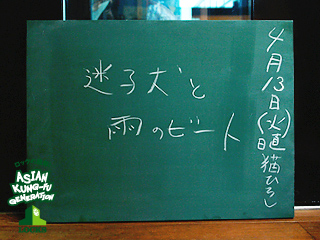 4月13日(火)
日直 猫ひろし
迷子犬と
雨のビート
ASIAN
KUNG-FU
GENERATION